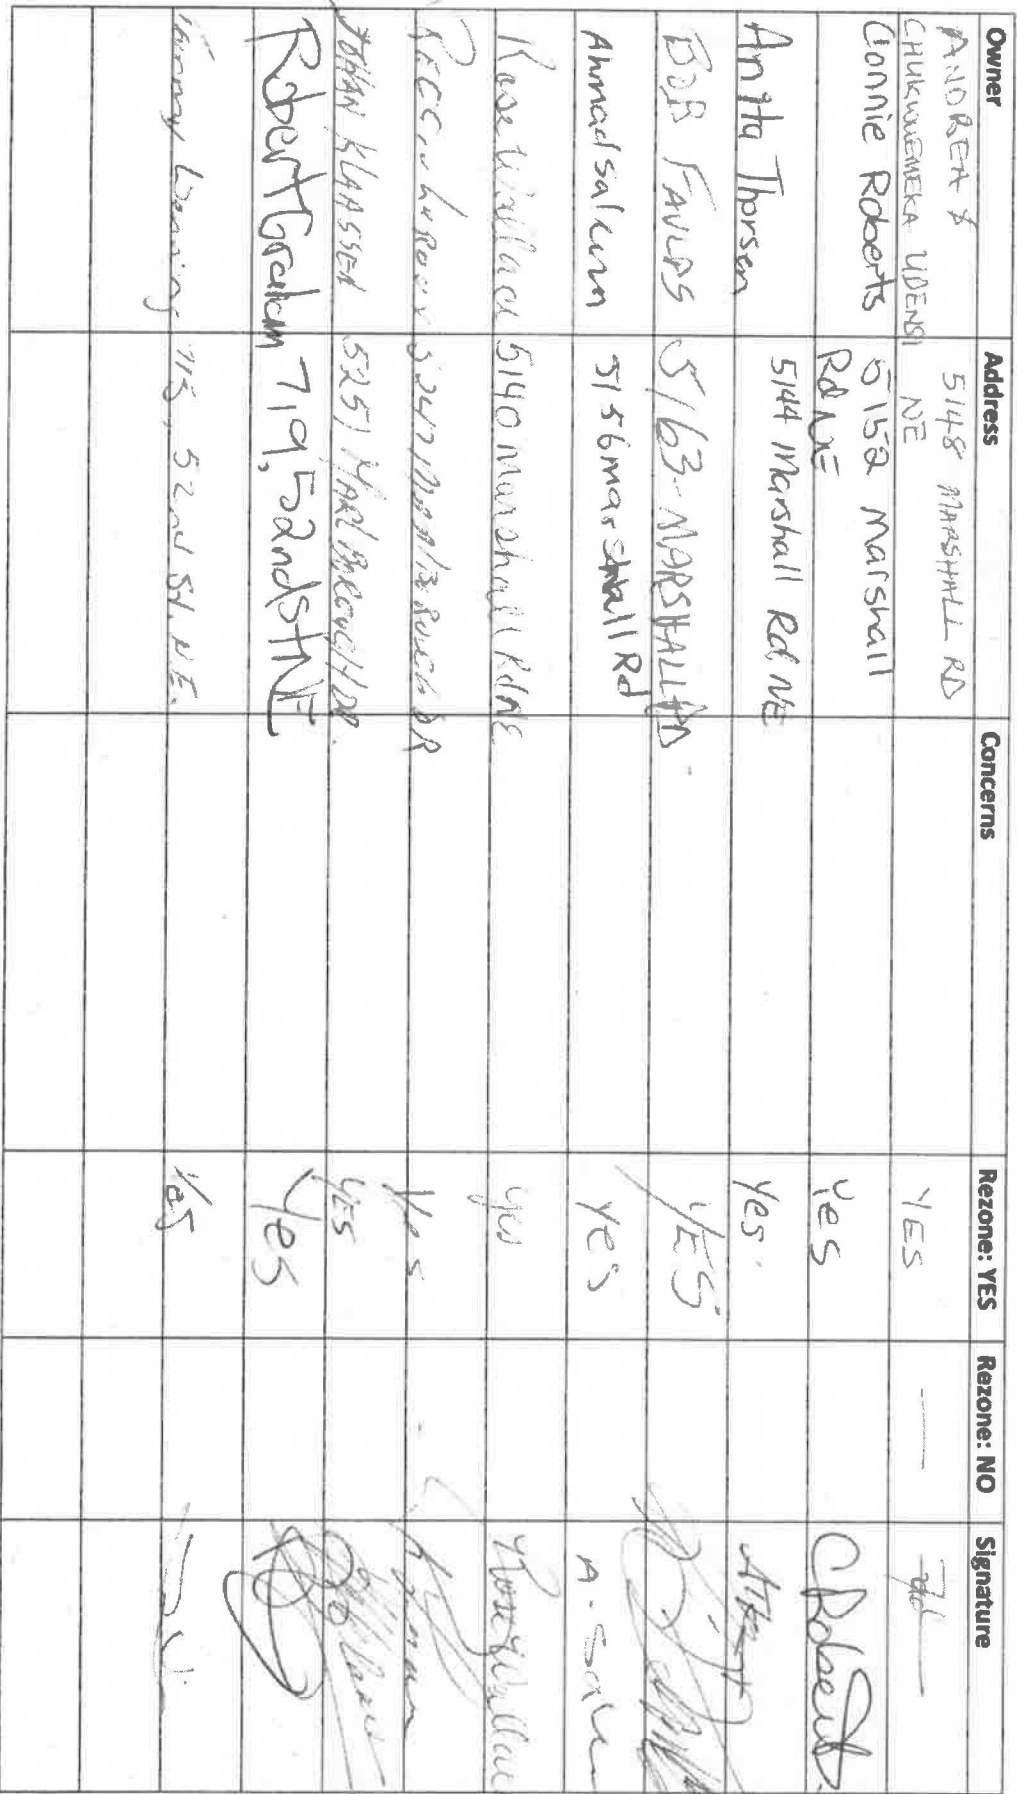 Owner Address Concerns Rezone: YES Rezone: NO Signature
ANDREA &
CHUKWUEMEKA UDENSI 5148 MARSHALL RD
NE YES — 
Connie Roberts 5152 Marshall
Rd NE Yes CRoberts
Anita Thorsen 5144 Marshall Rd. NE Yes.
BOB FAULDS 5163-MARSHALL RD YES
Ahmadsaleem 5156 marshall Rd yes A. Sale
Rose Wallace 5140 Marshall Rd NE yes Rose Wallace
5247 MARLBOROUGH DR Yes
JOHAN KLAASSEN 5251 MARLBOROUGH DR. YES
Robert Graham 719, 52nd St NE Yes
715, 52nd St. N.E. Yes